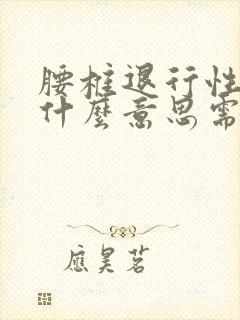 腰椎退行性
什麼意思需
應昊茗